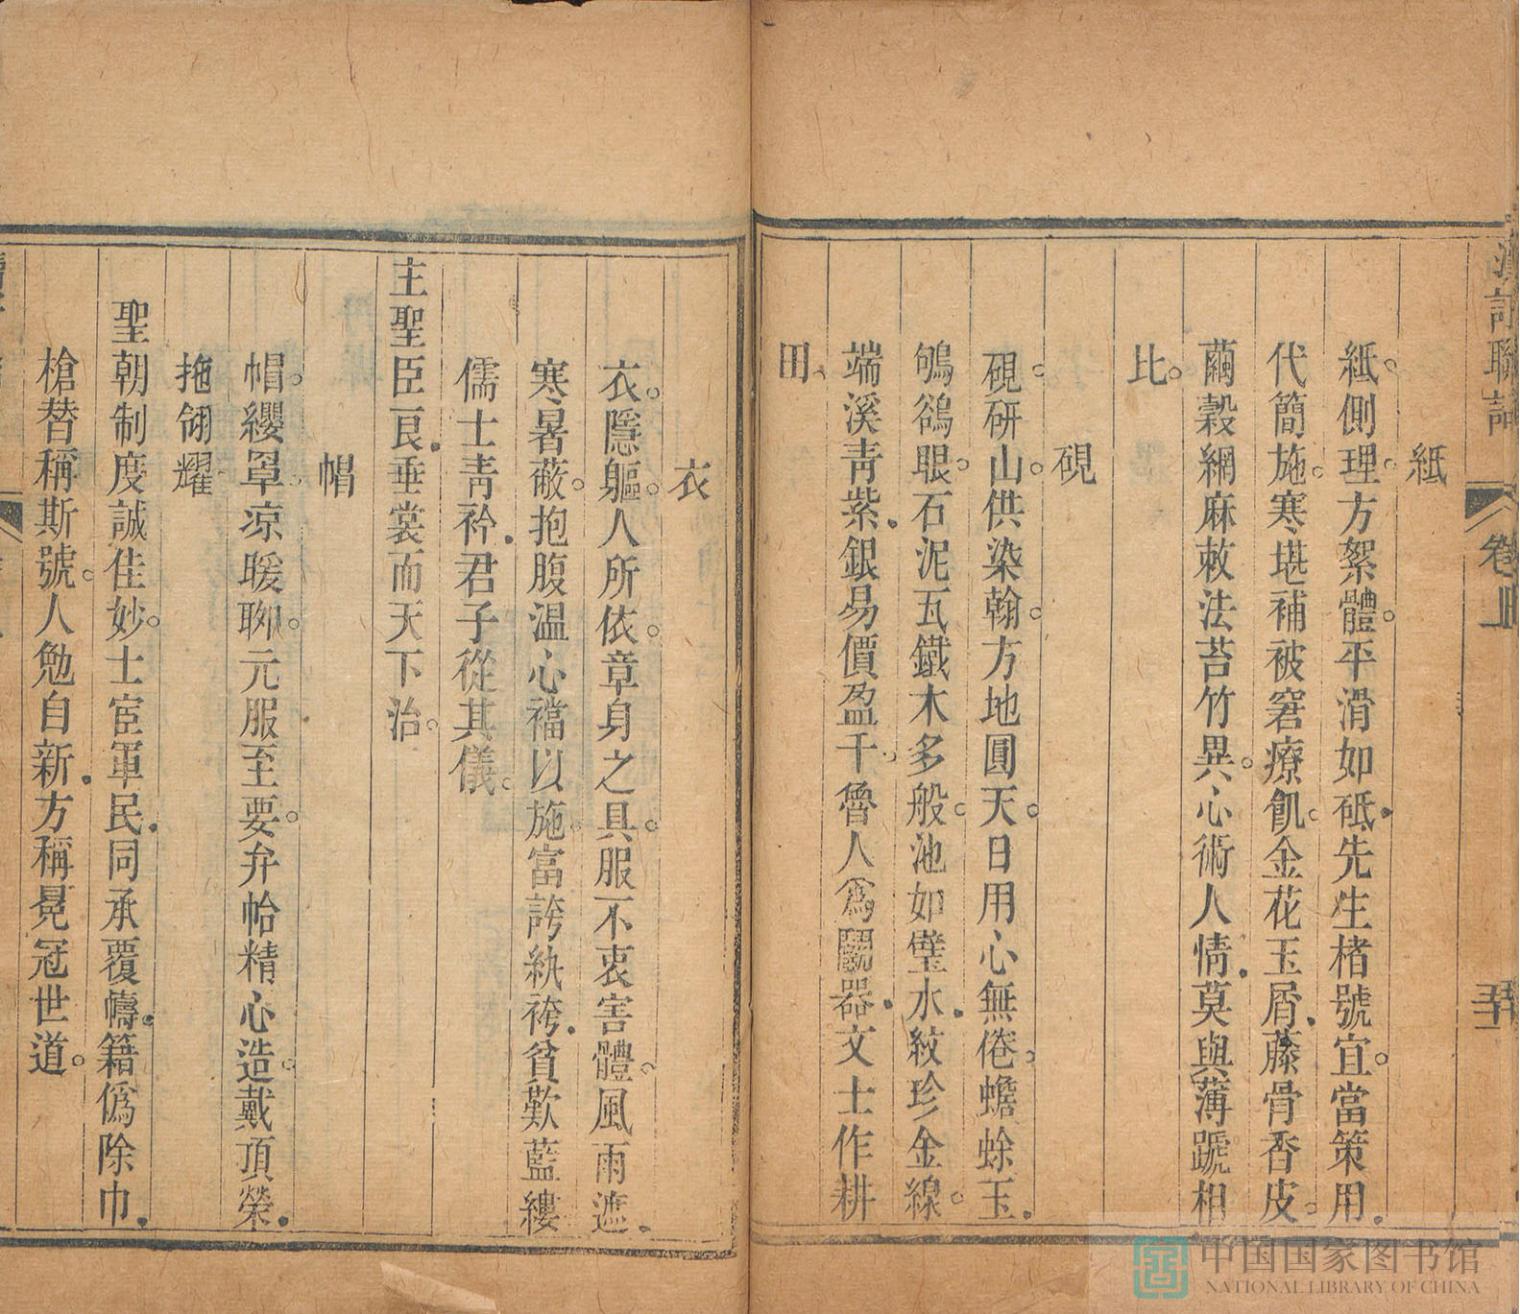 紙
紙側理方絮體平滑如砥先生楮號宜當策用
代簡施寒堪補被窘療飢金花玉屑藤骨香皮
繭縠網麻敕法苔竹異心術人情莫與薄蹏相
比
硯
硯研山供染翰方地圓天日用心無倦蟾蜍玉
鴝鵒眼石泥瓦鐵木多般池如璧水紋珍金線
端溪青紫銀易價盈千魯人爲鬭器文士作耕
田
衣
衣隱軀人所依章身之具服不衷害體風雨遮
寒暑蔽抱腹温心襠以施富誇紈袴貧歎藍縷
儒士青衿君子從其儀
主聖臣良垂裳而天下治
帽
帽纓罩凉暖聊元服至要弁帢精心造戴頂榮
拖翎耀
聖朝制度誠佳妙士宦軍民同承覆幬籍僞除巾
槍替稱斯號人勉自新方稱冕冠世道
卷上
中国国家图书馆
NATIONAL LIBRARY OF CHINA